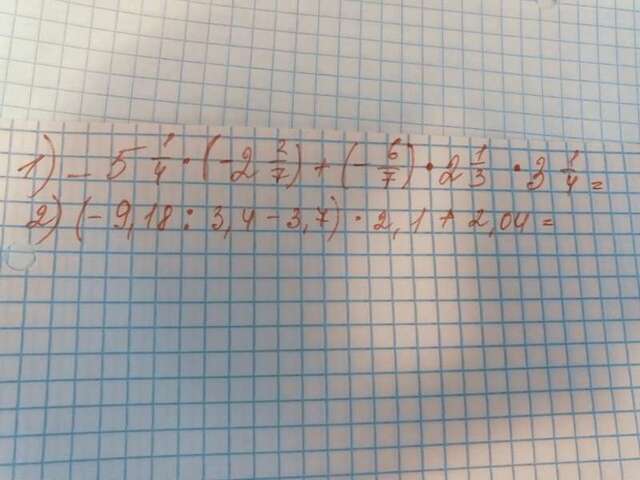 1) - 5 1/4 · (-2 2/7) + (- 6/7) · 2 1/3 · 3 1/4 =
2) (- 9,18 : 3,4 - 3,7) · 2,1 + 2,04 =